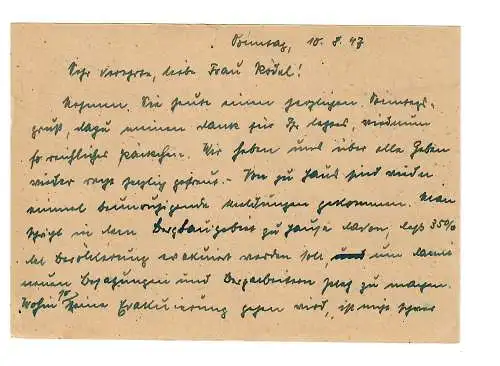 Sonntag, 10. 8. 47
Sehr verehrte, liebe Frau Rödel!
Nehmen Sie heute einen herzlichen Sonntags-
gruß, dazu meinen Dank für Ihr letztes, wiederum
so reichliches Päckchen. Wir haben uns über alle Gaben
wieder recht herzlich gefreut. - Von zu Haus sind wieder
einmal beunruhigende Meldungen gekommen. Man
spricht in dem Bergbaugebiet zu Hause davon, daß 35%
der Bevölkerung evakuiert werden soll, um damit
neuen Besatzungen und Bergarbeitern Platz zu machen.
Wohin so eine Evakuierung gehen wird, ist nicht schwer